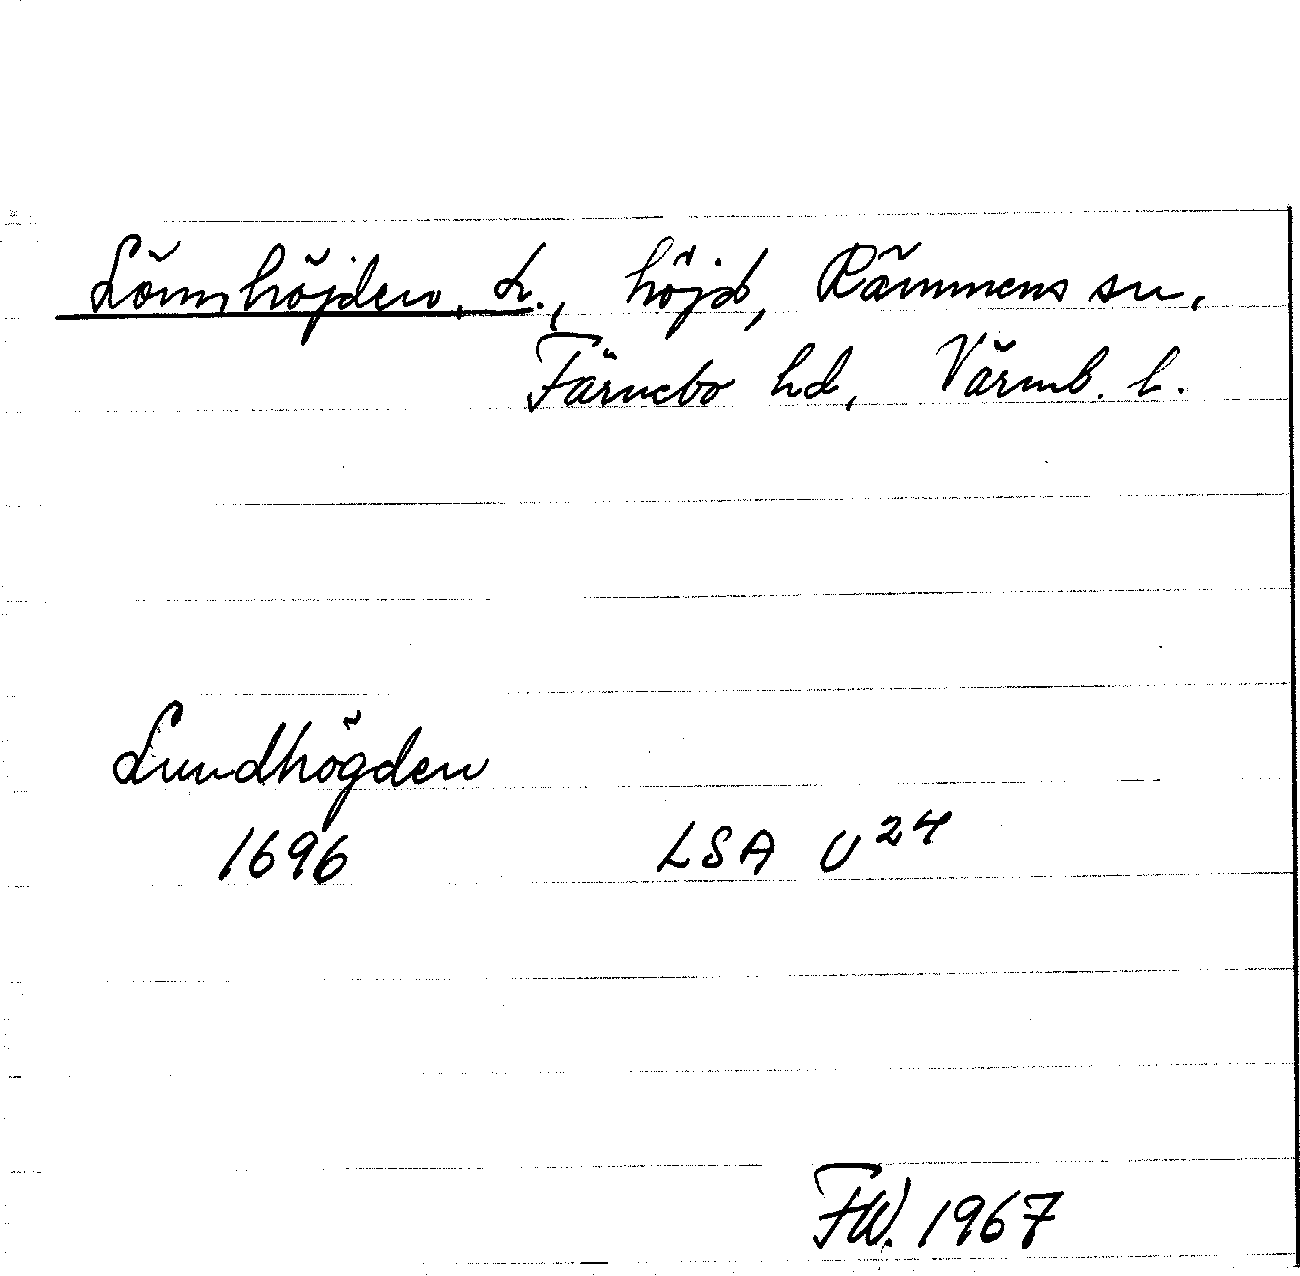 Lönnhöjden, L., höjd, Rämmens sn,
Färnebo hd, Värml. l.
Lundhögden
1696 LSA U24
FW. 1967